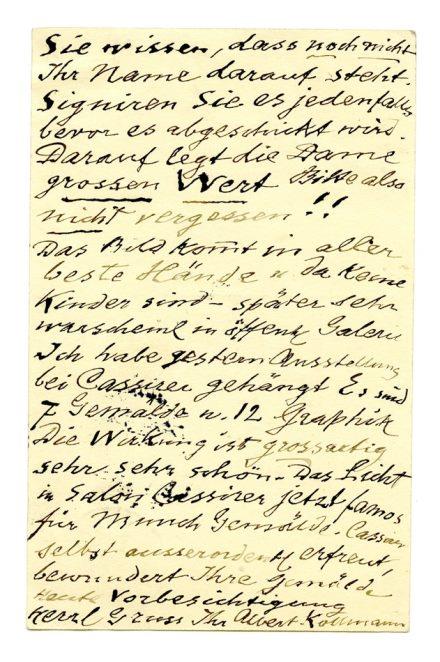 Sie wissen, dass noch nicht
Ihr Name darauf steht.
Signiren Sie es jedenfalls
bevor es abgeschickt wird.
Darauf legt die Dame
grossen Wert Bitte also
nicht vergessen!!
Das Bild kom̄t in aller
beste Hände u da keine
Kinder sind – später sehr
warscheinl in öffentl Galerie
Ich habe gestern Ausstellung
bei Cassirer gehängt Es sind
7 Gemälde u. 12 Graphik
Die Wirkung ist grossartig
sehr sehr schön. Das Licht
in Salon Cassirer jetzt famos
für Munch Gemälde. Cassirer
selbst ausserordentl erfreut,
bewundert Ihre Gemälde
Heute Vorbesichtigung
Herzl Gruss Ihr Albert Kollmann